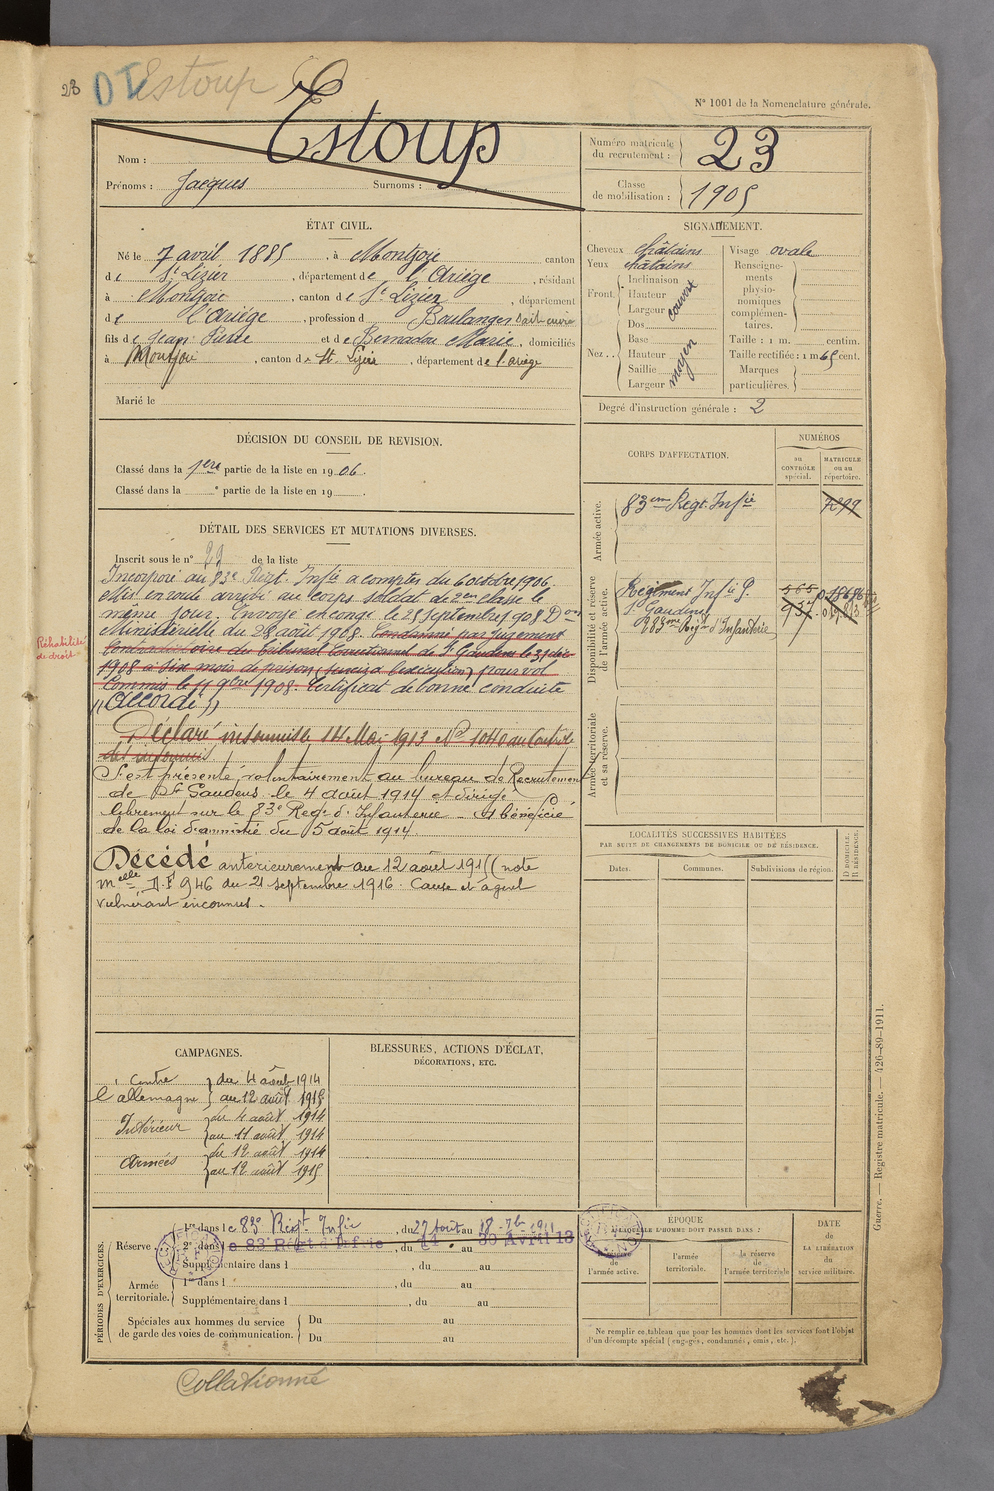 23 DT Estoup
N° 1001 de la Nomenclature générale.
Nom : Estoup
Prénoms : Jacques Surnoms :
Numéro matricule du recrutement : 23
Classe de mobilisation : 1905
ÉTAT CIVIL.
Né le 7 avril 1885, à Montjoie canton
de St Lizier, département de l'Ariège, résidant
à Montjoie, canton de St Lizier, département
de l'Ariège, profession d Boulanger
fils de Jean Pierre et de Bernadou Marie, domiciliés
à Montjoie, canton de St Lizier, département de l'ariège
Marié le
SIGNALEMENT.
Cheveux châtains
Yeux châtains
Front. Inclinaison
Hauteur couvert
Largeur
Dos
Nez . . Base
Hauteur moyen
Saillie
Largeur
Visage ovale
Renseignements physionomiques complémentaires.
Taille : 1 m. centim.
Taille rectifiée : 1 m 65 cent.
Marques particulières.
Degré d'instruction générale : 2
DÉCISION DU CONSEIL DE REVISION.
Classé dans la 1ere partie de la liste en 1906.
Classé dans la e partie de la liste en 19
CORPS D'AFFECTATION.
NUMÉROS
au CONTRÔLE spécial.
MATRICULE ou au répertoire.
Armée active.
83eme Régt. Infie
Disponibilité et réserve de l'armée active.
Régiment Infie
St Gaudens 937
R 83me Régt d'Infanterie
Armée territoriale et sa réserve.
DÉTAIL DES SERVICES ET MUTATIONS DIVERSES.
Inscrit sous le n° 29 de la liste
Incorporé au 83e Régt. Infie a compter du 6 octobre 1906.
Mis en route arrivé au corps soldat de 2eme classe le
même jour. Envoyé en congé le 25 Septembre 1908 Don
Ministérielle du 28 août 1908. Condamné par Jugement
Contradictoire du Tribunal Correctionnel de St Gaudens le 31 déc
1908 à six mois de prison (sursis à l'exécution) pour vol
Commis le 11 9bre 1908. Certificat de bonne conduite
"Accordé"
Réhabilité de droit
Déclaré insoumis le 14 Mai 1913 N° 1040 au Contrôle
des insoumis
S'est présenté volontairement au bureau de Recrutement
de St Gaudens le 4 août 1914 et dirigé
librement sur le 83e Reg. d'Infanterie – A bénéficié
de la loi d'amnistie du 5 août 1914
Décédé antérieurement au 12 août 1915 (note
melle D.F 946 du 21 septembre 1916. Cause et agent
vulnérant inconnus.
LOCALITÉS SUCCESSIVES HABITÉES
PAR SUITE DE CHANGEMENTS DE DOMICILE OU DE RÉSIDENCE.
Dates. Communes. Subdivisions de région.
D DOMICILE. R RÉSIDENCE.
CAMPAGNES.
Contre l'allemagne } du 4 août 1914
au 12 août 1915
Intérieur } du 4 août 1914
au 11 août 1914
Armées } du 12 août 1914
au 12 août 1915
BLESSURES, ACTIONS D'ÉCLAT,
DÉCORATIONS, ETC.
PÉRIODES D'EXERCICES.
Réserve 1re dans le 83e Régt. Infie, du 27 août au 18 7b 1911
2e dans le 83e Régt d'Infie, du 14 au 30 Avril 13
Supplémentaire dans l , du au
Armée territoriale. 1re dans l , du au
Supplémentaire dans l , du au
Spéciales aux hommes du service de garde des voies de communication. Du au
Du au
ÉPOQUE
À LAQUELLE L'HOMME DOIT PASSER DANS :
la réserve de l'armée active.
l'armée territoriale.
la réserve de l'armée territoriale
DATE de LA LIBÉRATION du service militaire.
Ne remplir ce tableau que pour les hommes dont les services font l'objet
d'un décompte spécial (engagés, condamnés, omis, etc.).
Guerre. — Registre matricule. — 426-89-1911.
Collationné